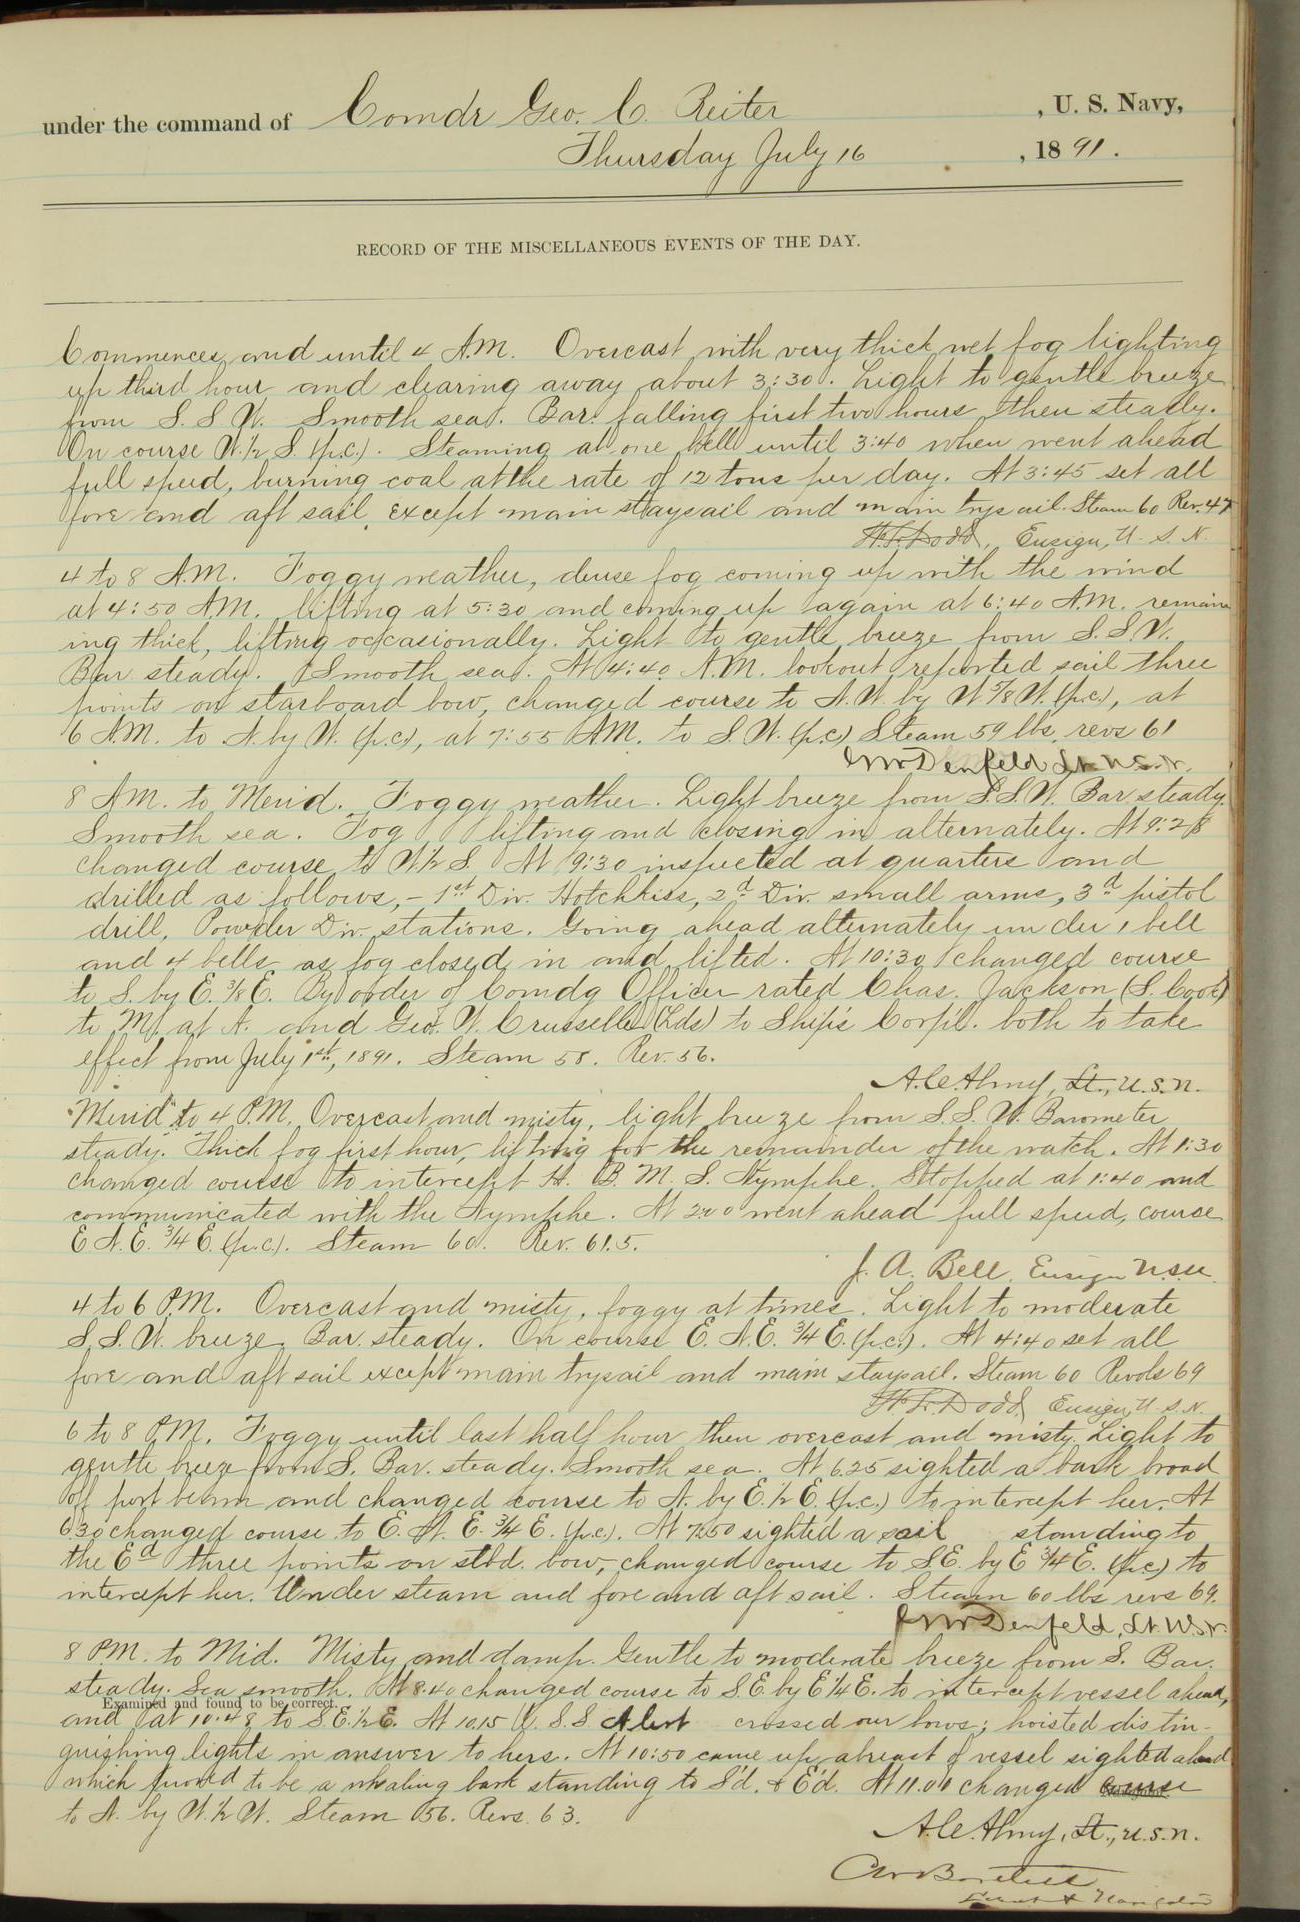 under the command of Comdr Geo. C. Reiter , U. S. Navy,
Thursday July 16 , 1891.
RECORD OF THE MISCELLANEOUS EVENTS OF THE DAY.
Commences and until 4 A.M. Overcast with very thick wet fog lighting
up third hour and clearing away about 3:30. Light to gentle breeze
from S.S.W. Smooth sea. Bar. falling first two hours then steady.
On course W.1/2 S. (p.c.). Steaming at one bell until 3:40 when went ahead
full speed, burning coal at the rate of 12 tons per day. At 3:45 set all
fore and aft sail except main staysail and main trysail. Steam 60 Rev. 47
Dodd, Ensign, U.S.N.
4 to 8 A.M. Foggy weather, dense fog coming up with the wind
at 4:50 A.M. lifting at 5:30 and coming up again at 6:40 A.M. remain
ing thick, lifting occasionally. Light to gentle breeze from S.S.W.
Bar steady. Smooth sea. At 4:40 A.M. lookout reported sail three
points on starboard bow, changed course to N.W. by W 7/8 W. (p.c.), at
6 A.M. to N. by W. (p.c), at 7:55 A.M. to S.W. (p.c) Steam 59 lbs, revs 61
Denfeld Lt. U.S.N.
8 A.M. to Merid. Foggy weather. Light breeze from S.S.W. Bar steady
Smooth sea. Fog lifting and closing in alternately. At 9:28
changed course to W.1/2 S. At 9:30 inspected at quarters and
drilled as follows, - 1st Div. Hotchkiss, 2d Div. small arms, 3d pistol
drill, Powder Div. stations. Going ahead alternately under 1 bell
and 4 bells as fog closed in and lifted. At 10:30 changed course
to S. by E. 3/8 E. By order of Comdg Officer rated Chas. Jackson (S. Cook)
to M. at A. and Geo. W. Crusselle (Lds) to Ship's Corp'l. both to take
effect from July 1st, 1891. Steam 58. Rev. 56.
Almy, Lt., U.S.N.
Merid to 4 P.M. Overcast and misty, light breeze from S.S.W. Barometer
steady. Thick fog first hour, lifting for the remainder of the watch. At 1:30
changed course to intercept H.B.M.S. Nymphe. Stopped at 1:40 and
communicated with the Nymphe. At 2:00 went ahead full speed, course
E.N.E. 3/4 E. (p.c.). Steam 60. Rev. 61.5.
J. A. Bell, Ensign U.S.N.
4 to 6 P.M. Overcast and misty, foggy at times. Light to moderate
S.S.W. breeze. Bar. steady. On course E.N.E. 3/4 E. (p.c.). At 4:40 set all
fore and aft sail except main trysail and main staysail. Steam 60 Revols 69
Dodd, Ensign, U.S.N.
6 to 8 P.M. Foggy until last half hour then overcast and misty. Light to
gentle breeze from S. Bar. steady. Smooth sea. At 6.25 sighted a bark broad
off port beam and changed course to N. by E. 1/2 E. (p.c.) to intercept her. At
6.30 changed course to E.N.E. 3/4 E. (p.c.). At 7:50 sighted a sail standing to
the Ed three points on stbd. bow, changed course to S.E. by E 3/4 E. (p.c) to
intercept her. Under steam and fore and aft sail. Steam 60 lbs revs 69.
Denfeld, Lt. U.S.N.
8 P.M. to Mid. Misty and damp. Gentle to moderate breeze from S. Bar.
steady. Sea smooth. At 8.40 changed course to S.E. by E 1/4 E. to intercept vessel ahead,
Examined and found to be correct.
and at 10.48 to S.E. 1/2 E. At 10.15 U.S.S. Alert crossed our bows; hoisted distin-
guishing lights in answer to hers. At 10:50 came up abreast of vessel sighted ahead
which proved to be a whaling bark standing to S'd. & E'd. At 11.00 changed course
to N. by W. 1/2 W. Steam 56. Revs. 63.
Almy, Lt., U.S.N.